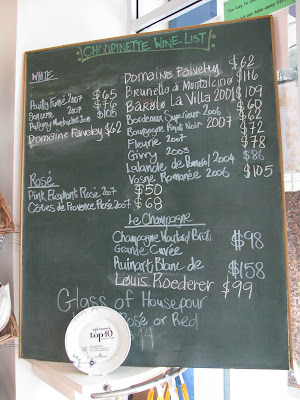 CHOUPINETTE WINE-LIST
WHITE
Pouilly Fumé 2007 $65
Sancerre 2007 $76
Puligny Montrachet 2005 $105
Domaine Faiveley $62
Rosé
Pink Elephant Rosé 2007 $50
Côtes de Provence Rosé 2007 $68
Domaine Faiveley $62
Brunello di Montalcino $116
Barolo La Villa 2001 $109
Bordeaux Superieur 2006 $60
Bourgogne Pinot Noir 2007 $62
Fleurie 2007 $72
Givry 2003 $78
Lalande de Pomerol 2004 $86
Vosne Romanée 2006 $105
Le Champagne
Champagne Moutard Brut
Grande Cuvée $98
Ruinart Blanc de $158
Louis Roederer $99
Glass of Housepour
Rosé or Red
14
top10